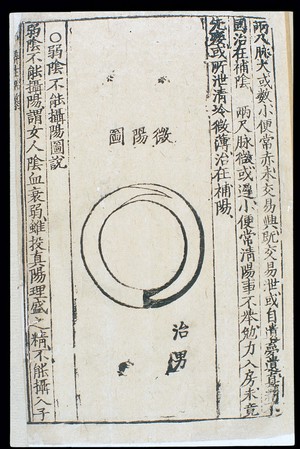 兩尺脉大或數小便常赤未交易興既交易泄或自
國治在補陰　兩尺脉微或濇小便常清陽事不舉勉力入房未竟
先痿或所泄清冷微薄治在補陽
微陽圖
治男
○弱陰不能攝陽圖說
弱陰不能攝陽謂女人陰血衰弱雖投真陽理盛之精不能攝入子